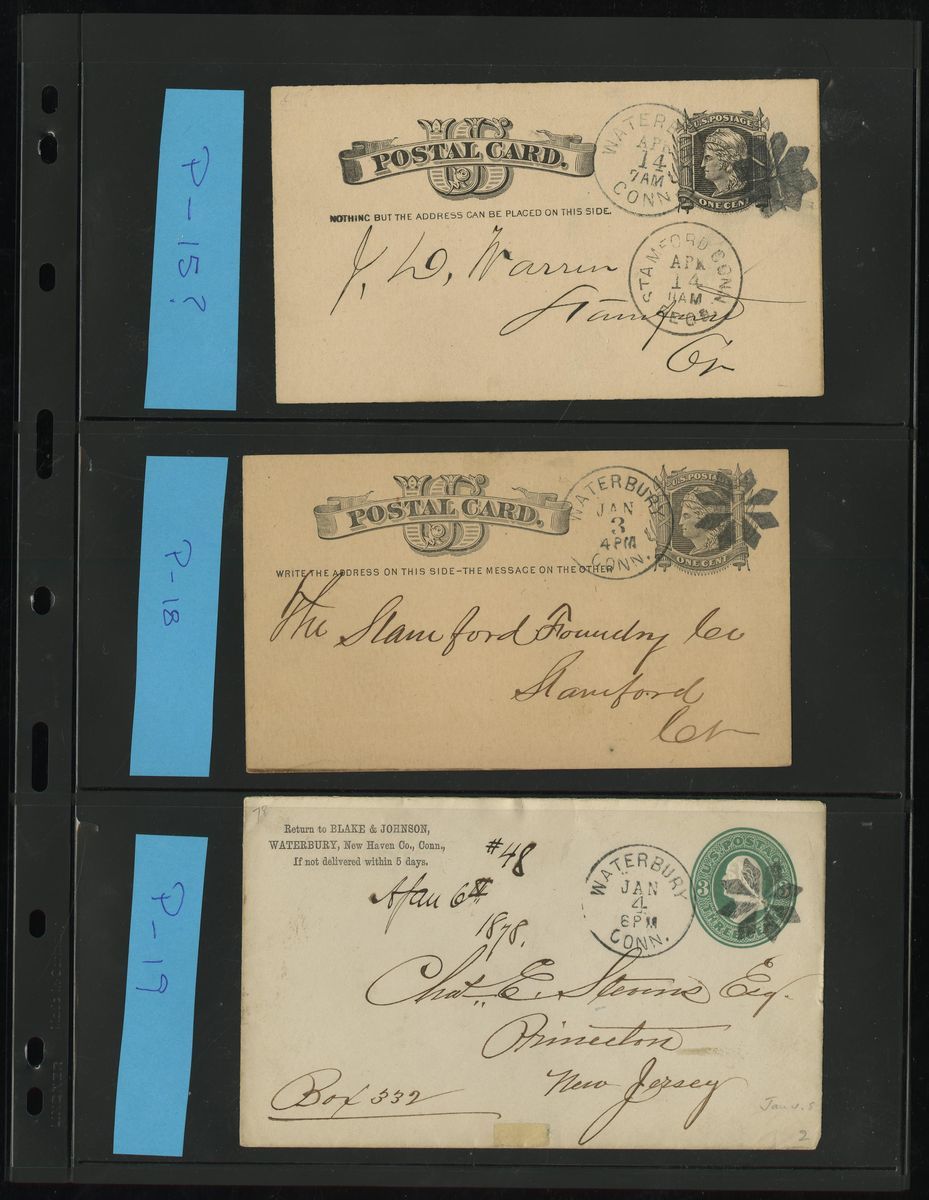 P-15?
POSTAL CARD.
US
NOTHING BUT THE ADDRESS CAN BE PLACED ON THIS SIDE.
WATERBURY
APR
14
7AM
CONN.
U.S. POSTAGE
ONE CENT
J. D. Warren
Stamford
Ct
STAMFORD CONN
APR
14
11AM
REC'D
P-18
POSTAL CARD.
US
WRITE THE ADDRESS ON THIS SIDE-THE MESSAGE ON THE OTHER
WATERBURY
JAN
3
4PM
CONN.
U.S. POSTAGE
ONE CENT
The Stamford Foundry Co
Stamford
Ct
P-19
78
Return to BLAKE & JOHNSON,
WATERBURY, New Haven Co., Conn.,
If not delivered within 5 days.
#48
1878.
WATERBURY
JAN
4
6PM
CONN.
U.S. POSTAGE
3
THREE CENTS
Chas. E. Stevens Esq.
Princeton
New Jersey
Box 332
2
LINDNER